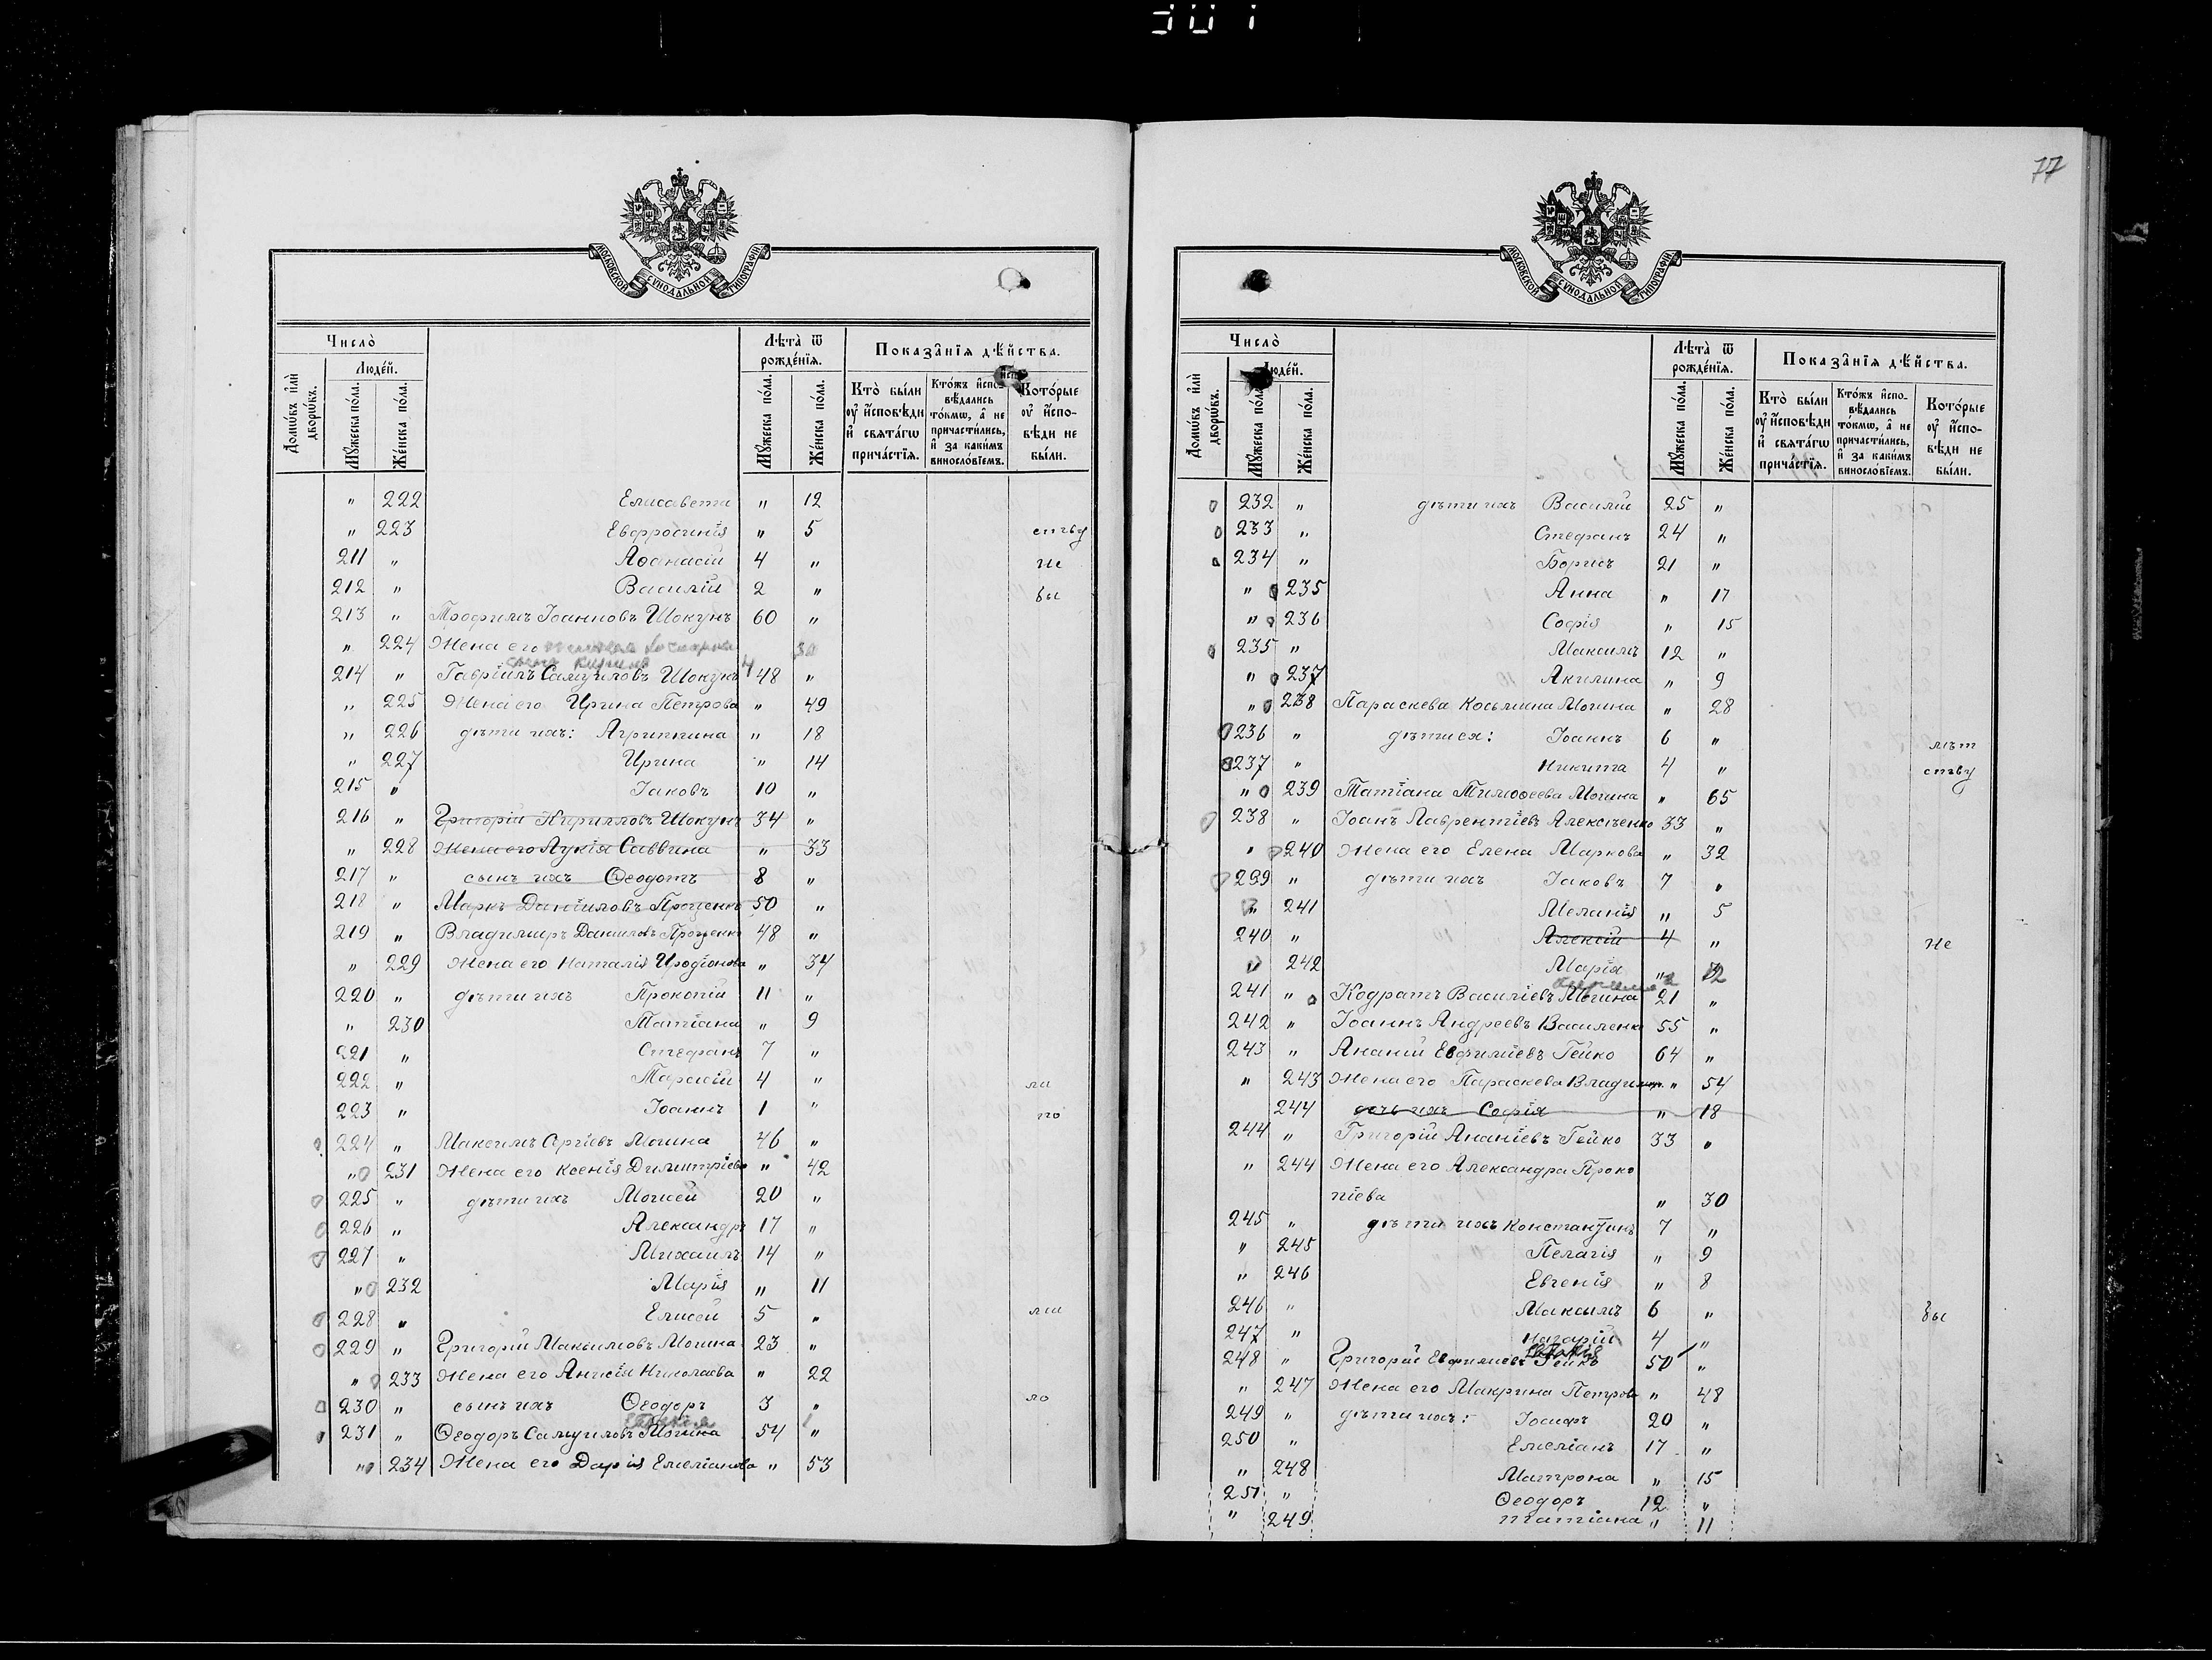 77
МОСКОВСКОЙ СѴНОДАЛЬНОЙ ТИПОГРАФІИ
Число̀
Домѡ́въ и҆лѝ дворѡ́въ.
Люде́й.
Мꙋ́жеска по́ла.
Же́нска по́ла.
Лѣ́та̀ ѿ рожде́нїѧ.
Мꙋ́жеска по́ла.
Же́нска по́ла.
Показа̑нїѧ дѣ́йства.
Кто̀ бы́ли оу҆ и҆сповѣди и҆ свѧта́гѡ прича́стїѧ.
Кто́жъ и҆спо-вѣ́дались то́кмѡ, а҆ не причасти́лись, и҆ за каки́мъ винословіемъ.
Кото́рые оу҆ и҆спо-вѣди не бы́ли.
" 222 Елисавета " 12
" 223 Евфросинія " 5 ству
211 " Аѳанасій 4 " не
212 " Василій 2 " бы
213 " Трофимъ Іоанновъ Шокунъ 60 "
" 224 Жена его 30
214 " Гавріилъ Самуиловъ Шокунъ 48 "
" 225 Жена его Ирина Петрова " 49
" 226 дѣти ихъ: Агриппина " 18
" 227 Ирина " 14
215 " Іаковъ 10 "
216 " Григорій Кирилловъ Шокунъ 34 "
" 228 Жена его Лукія Саввина " 33
217 " сынъ ихъ Ѳеодотъ 8 "
218 " Маркъ Даніиловъ Проценко 50 "
219 " Владимиръ Даниловъ Проценко 48 "
" 229 Жена его Наталія Иродіонова " 34
220 " дѣти ихъ Прокопій 11 "
" 230 Татіана " 9
221 " Стефанъ 7 "
222 " Тарасій 4 " ли
223 " Іоаннъ 1 " по
224 " Максимъ Сргіевъ Могина 46 "
" 231 Жена его Ксенія Димитріева " 42
225 " дѣти ихъ Моисей 20 "
226 " Александръ 17 "
227 " Михаилъ 14 "
" 232 Марія " 11
228 " Елисей 5 " ли
229 " Григорій Максимовъ Могина 23 "
" 233 Жена его Анисія Николаева " 22
230 " сынъ ихъ Ѳеодоръ 3 " ло
231 " Ѳеодоръ Самуиловъ Могина 54 "
" 234 Жена его Дарія Емеліанова " 53
МОСКОВСКОЙ СѴНОДАЛЬНОЙ ТИПОГРАФІИ
Число̀
Домѡ́въ и҆лѝ дворѡ́въ.
Люде́й.
Мꙋ́жеска по́ла.
Же́нска по́ла.
Лѣ́та̀ ѿ рожде́нїѧ.
Мꙋ́жеска по́ла.
Же́нска по́ла.
Показа̑нїѧ дѣ́йства.
Кто̀ бы́ли оу҆ и҆сповѣди и҆ свѧта́гѡ прича́стїѧ.
Кто́жъ и҆спо-вѣ́дались то́кмѡ, а҆ не причасти́лись, и҆ за каки́мъ винословіемъ.
Кото́рые оу҆ и҆спо-вѣди не бы́ли.
232 " дѣти ихъ Василій 25 "
233 " Стефанъ 24 "
234 " Борисъ 21 "
" 235 Анна " 17
" 236 Софія " 15
235 " Максимъ 12 "
" 237 Акилина " 9
" 238 Параскева Косьмина Могина " 28
236 " дѣти ея: Іоаннъ 6 " лѣт
237 " Никита 4 " ству
" 239 Татіана Тимоѳеева Могина " 65
238 " Іоанъ Лаврентіевъ Алексѣенко 33 "
" 240 Жена его Елена Маркова " 32
239 " дѣти ихъ Іаковъ 7 "
" 241 Меланія " 5
240 " Алексій 4 " не
" 242 Марія " 2
241 " Кодратъ Василіевъ Могина 21 "
242 " Іоаннъ Андреевъ Василенко 55 "
243 " Ананій Евфиміевъ Гейко 64 "
" 243 Жена его Параскева Владимир. " 54
244 дочь ихъ Софія " 18
244 " Григорій Ананіевъ Гейко 33 "
" 244 Жена его Александра Проко
піева " 30
245 " дѣти ихъ Константинъ 7 "
" 245 Пелагія " 9
" 246 Евгенія " 8
246 " Максимъ 6 " бы
247 " Назарій 4 "
248 " Григорій Евфиміевъ Гейко 50 "
" 247 Жена его Макрина Петрова " 48
249 " дѣти ихъ: Іосифъ 20 "
250 " Емеліанъ 17 "
" 248 Матрона " 15
251 " Ѳеодоръ 12 "
" 249 Татіана " 11